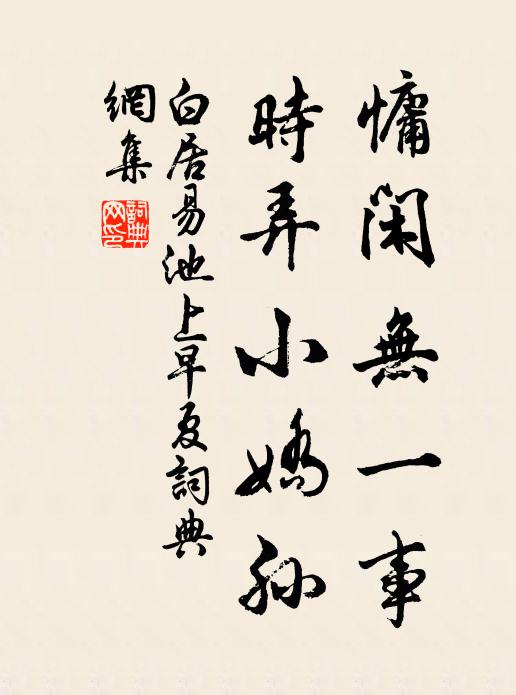 慵閑無一事
時弄小嬌孫
白居易池上早夏詞典
網集
詞典
网印